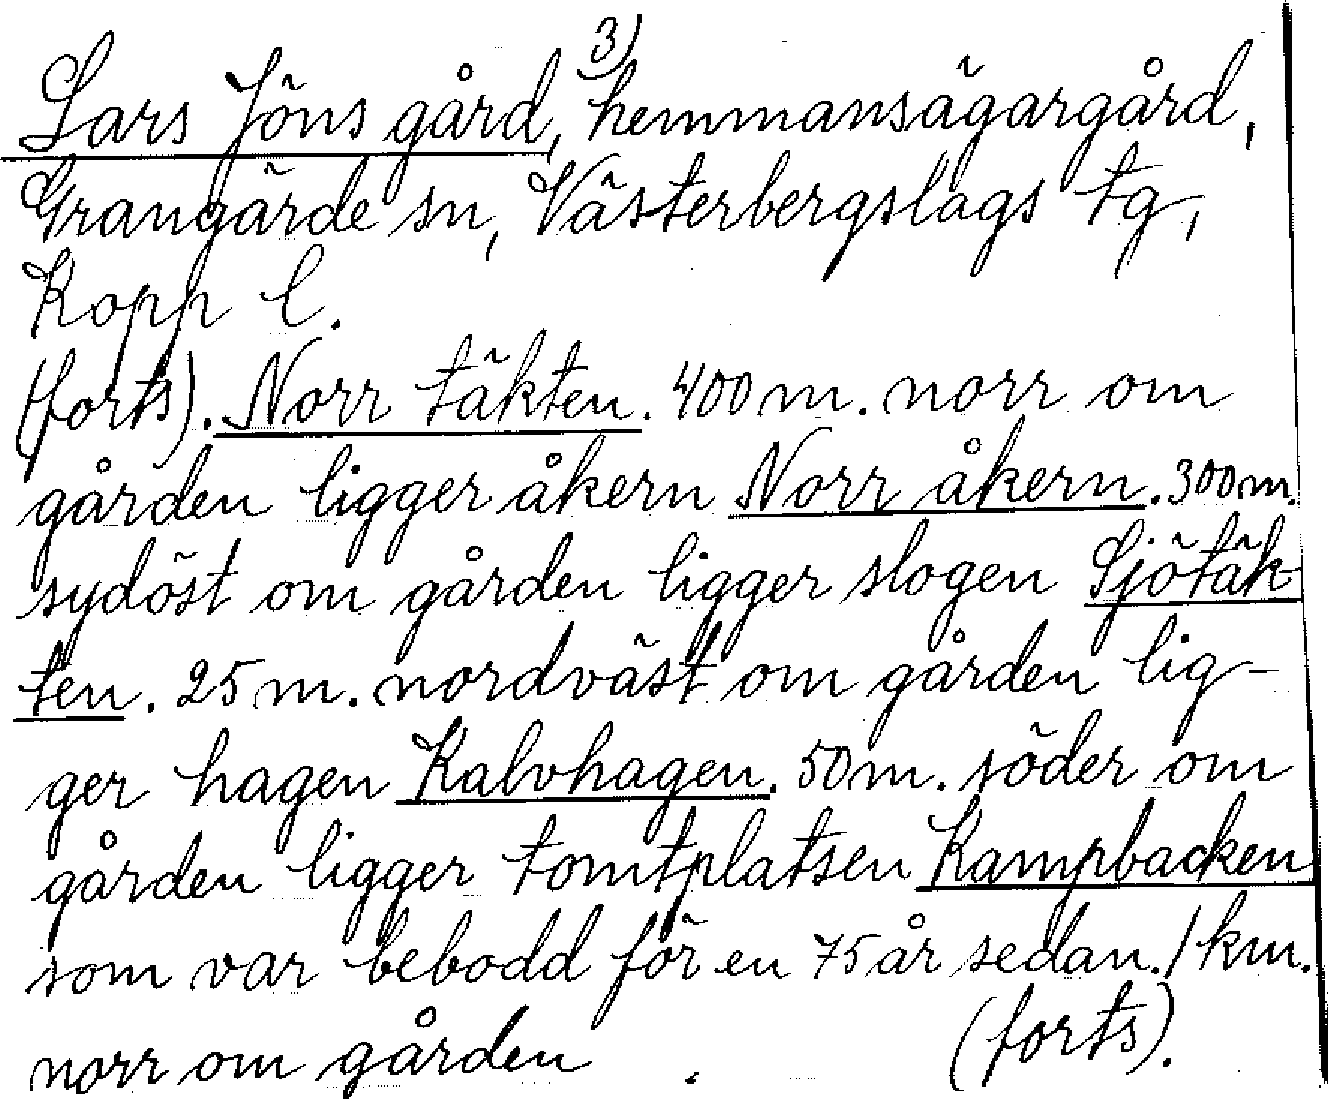 3)
Lars Jöns gård, hemmansägargård,
Grangärde sn, Västerbergslags tg,
Kopp l.
(forts). Norr täkten. 400 m. norr om
gården ligger åkern Norr åkern. 300 m.
sydöst om gården ligger slogen Sjötäk-
ten. 25 m. nordväst om gården lig-
ger hagen Kalvhagen. 50 m. söder om
gården ligger tomtplatsen Kampbacken
som var bebodd för en 75 år sedan. 1 km.
norr om gården . (forts).